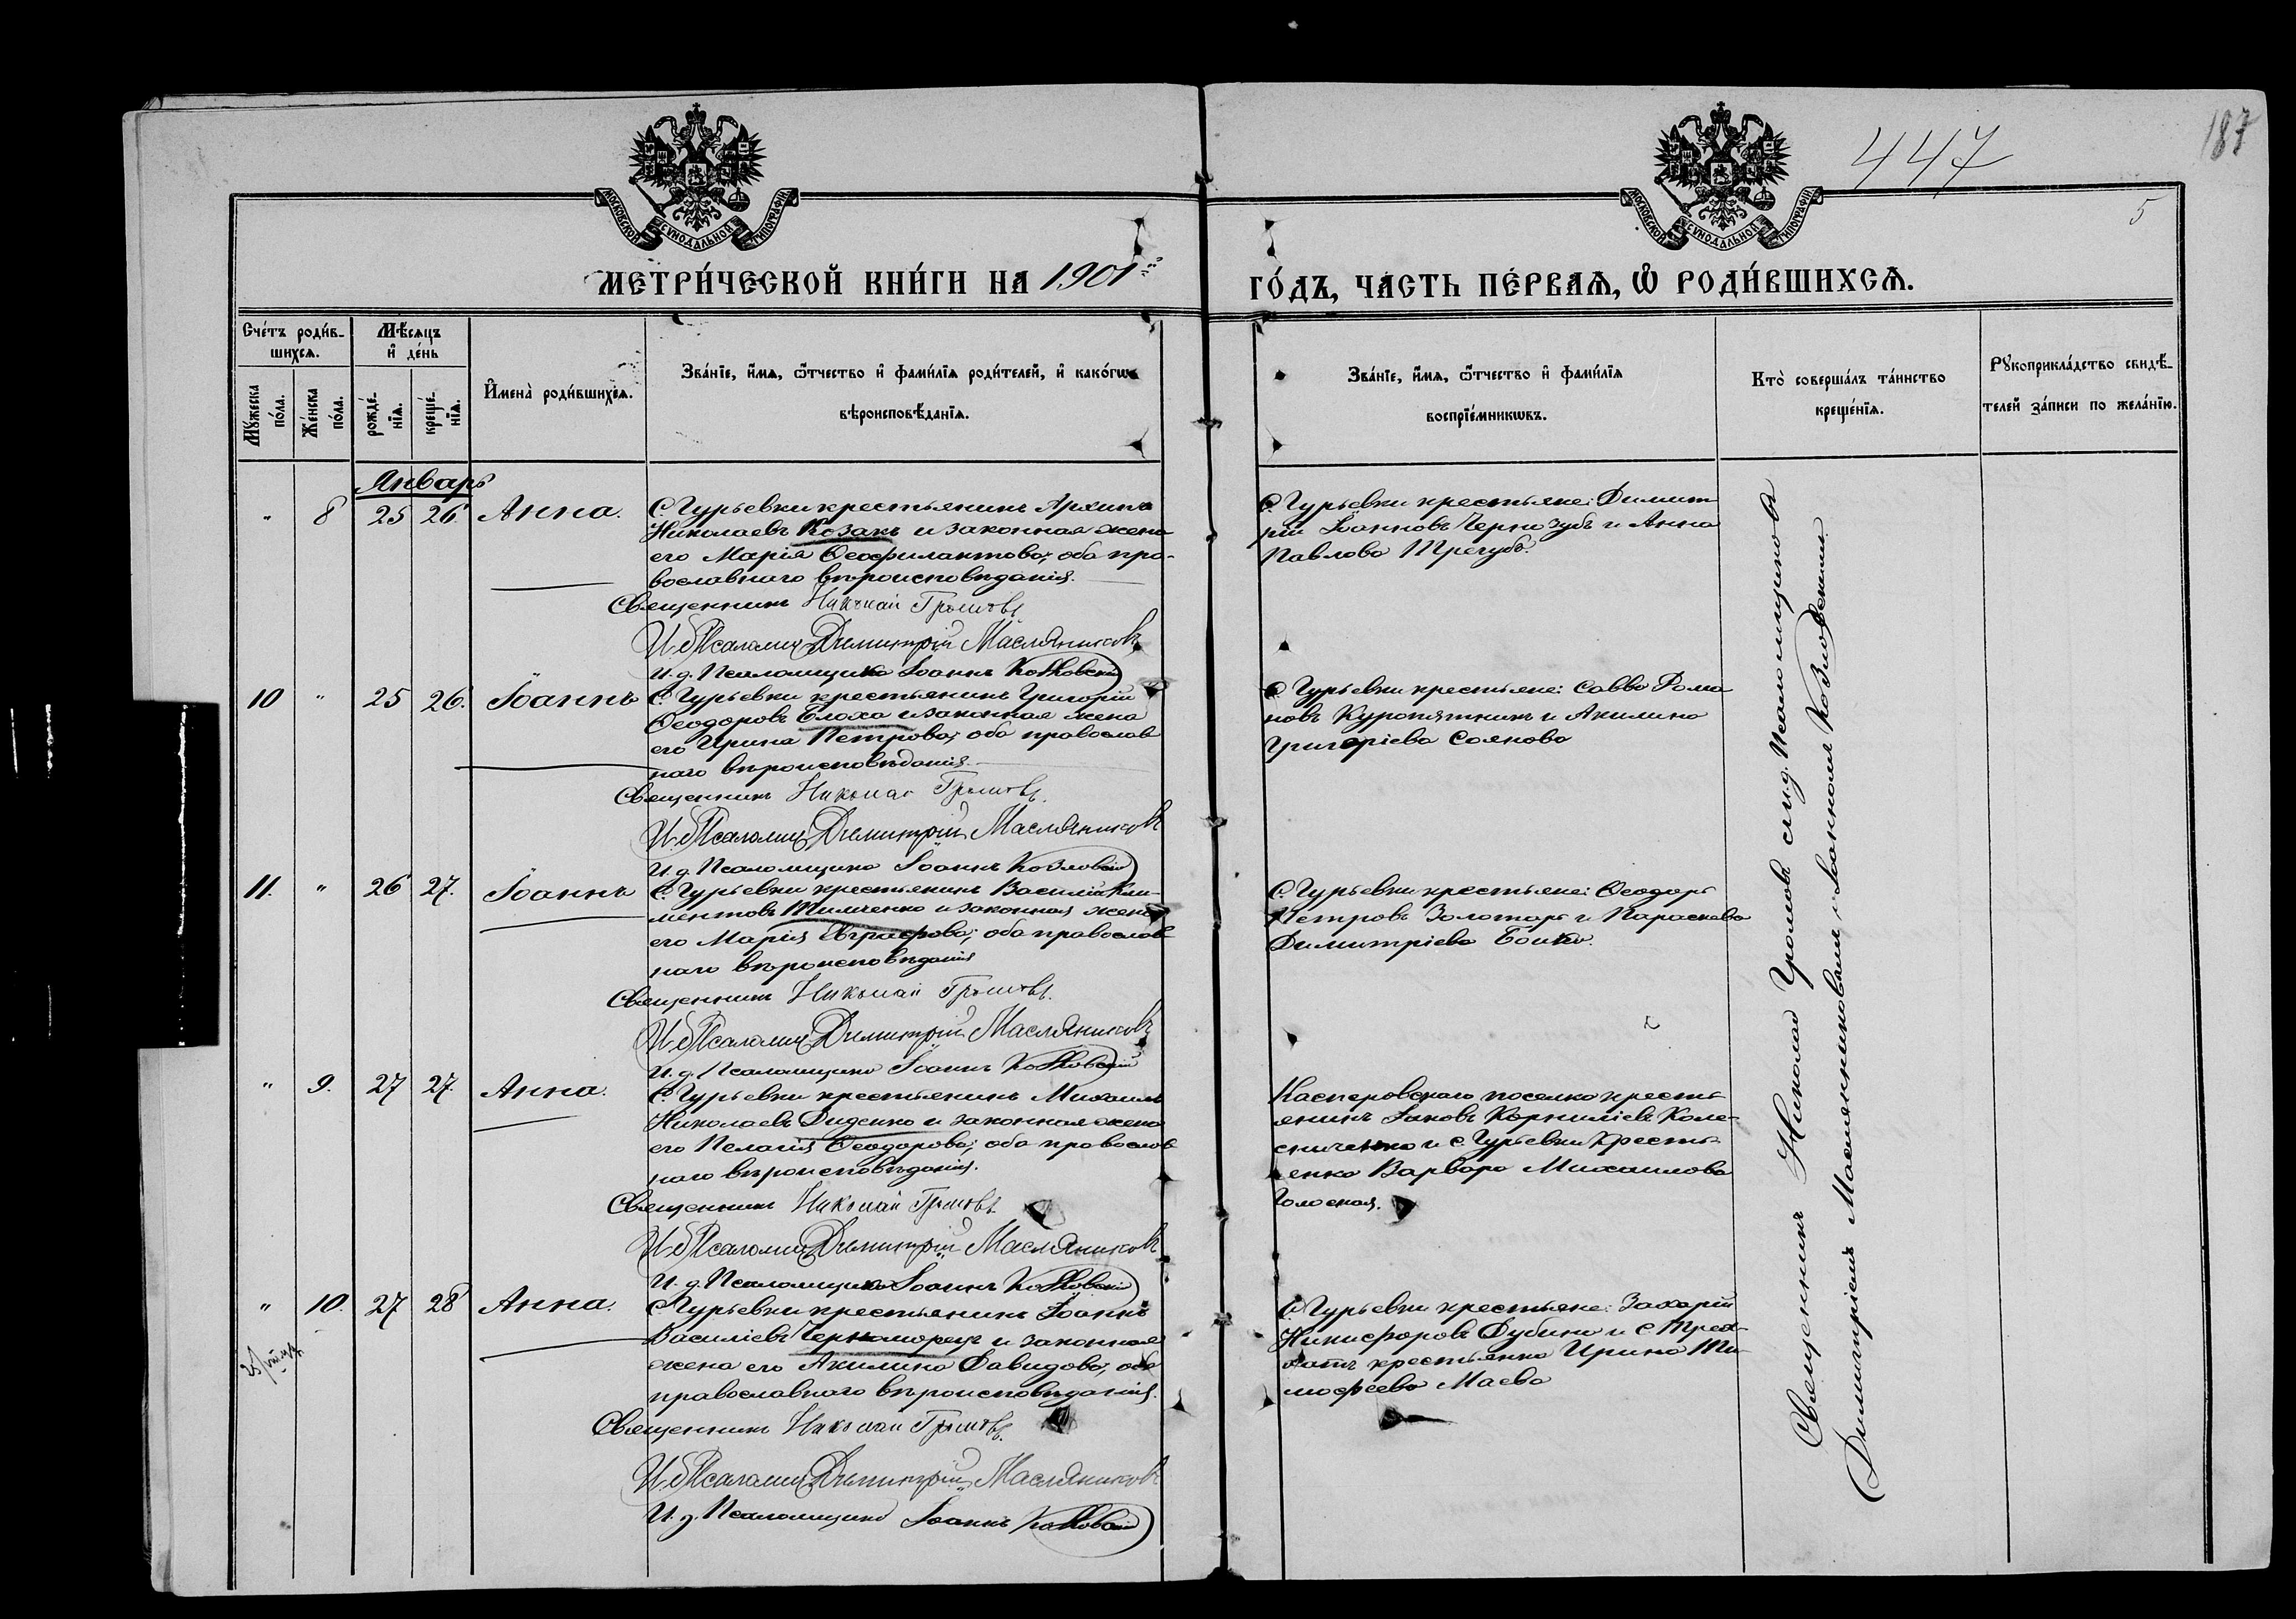 187
447
5
МОСКОВСКОЙ СУНОДАЛЬНОЙ ТИПОГРАФІИ
МОСКОВСКОЙ СУНОДАЛЬНОЙ ТИПОГРАФІИ
МЕТРИ́ЧЕСКОЙ КНИ́ГИ НА 1901 ГО́ДЪ, ЧА́СТЬ ПЕ́РВАѦ, Ѽ РОДИ́ВШИХСѦ.
Сче́тъ роди́в-
шихсѧ.
Мꙋжеска по́ла.
Же́нска по́ла.
Мѣ́сѧцъ
и҆ де́нь
рожде́-
нїѧ.
креще́-
нїѧ.
И҆мена̀ роди́вшихсѧ.
Зва́нїе, и҆́мѧ, ѻ҆́тчество и҆ фами́лїѧ роди́телей, и҆ како́гѡ
вѣроисповѣ́данїѧ.
Зва́нїе, и҆́мѧ, ѻ҆́тчество и҆ фами́лїѧ
воспрїе́мникѡвъ.
Кто̀ соверша́лъ та́инство
креще́нїѧ.
Рꙋкоприкла́дство свидѣ́-
телей за́писи по жела́нїю.
Январь
" 8 25 26 Анна.
С. Гурьевки крестьянинъ Архипъ
Николаевъ Козакъ и законная жена
его Марія Ѳеофилактова; оба пра-
вославнаго вѣроисповѣданія.
Священникъ Николай Громовъ
И. д. Псаломщ. Димитрій Масляниковъ
И. д. Псаломщика Іоаннъ Козловскій
С. Гурьевки крестьяне: Димит-
рій Іоанновъ Чернозубъ и Анна
Павлова Трегубъ.
10 " 25 26. Іоаннъ
С. Гурьевки крестьянинъ Григорій
Ѳеодоровъ Блоха и законная жена
его Ирина Петрова; оба православ
наго вѣроисповѣданія.
Священникъ Николай Громовъ.
И. д. Псаломщ. Димитрій Масляниковъ
И. д. Псаломщика Іоаннъ Козловскій
С. Гурьевки крестьяне: Савва Рома
новъ Куропятникъ и Акилина
Григоріева Саянова
11. " 26 27. Іоаннъ
С. Гурьевки крестьянинъ Василій Кли-
ментовъ Тимченко и законная жена
его Марія Евграфова; оба православ
наго вѣроисповѣданія
Священникъ Николай Громовъ.
И. д. Псаломщ. Димитрій Масляниковъ
И. д. Псаломщика Іоаннъ Козловскій
С. Гурьевки крестьяне: Ѳеодоръ
Петровъ Золотарь и Параскева
Димитріева Бойко.
" 9. 27 27. Анна.
С. Гурьевки крестьянинъ Михаилъ
Николаевъ Диденко и законная жена
его Пелагія Ѳеодорова; оба православ
наго вѣроисповѣданія.
Священникъ Николай Громовъ.
И. д. Псаломщ. Димитрій Масляниковъ
И. д. Псаломщика Іоаннъ Козловскій
Касперовскаго поселка кресть
янинъ Іаковъ Корниліевъ Коле-
сниченко и с. Гурьевки кресть-
янка Варвара Михаилова
" 10. 27 28 Анна.
С. Гурьевки крестьянинъ Іоаннъ
Василіевъ Черноморецъ и законная
жена его Акилина Давидова; оба
православнаго вѣроисповѣданія.
Священникъ Николай Громовъ.
И. д. Псаломщ. Димитрій Масляниковъ
И. д. Псаломщика Іоаннъ Козловскій
С. Гурьевки крестьяне: Захарій
Никифоровъ Дубина и с. Трех-
хатъ крестьянка Ирина Ти-
мофеева Маева
Священникъ Николай Громовъ съ и. д. Псаломщиковъ
Димитріемъ Масляниковымъ и Іоанномъ Козловскимъ